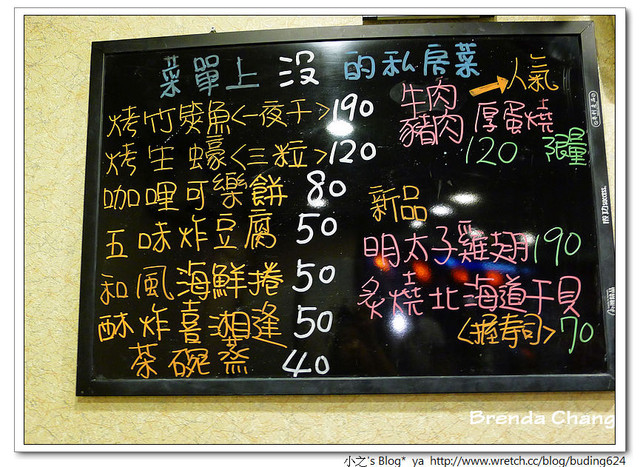 菜單上 沒 的私房菜
烤竹筴魚<一夜干>190
烤生蠔<三粒>120
咖哩可樂餅 80
五味炸豆腐 50
和風海鮮捲 50
酥炸喜相逢 50
茶碗蒸 40
人氣
牛肉
豬肉 厚蛋燒
120 限量
新品
明太子雞翅190
炙燒北海道干貝
<握寿司>70
Brenda Chang
小之's Blog* ya http://www.wretch.cc/blog/buding624